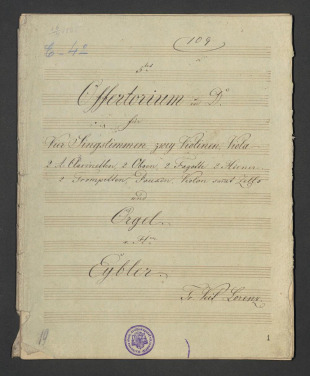 109
6-42
5tes
Offertorium in D.
für
Vier Singstimmen zwey Violinen, Viola
2 A Clarinetten, 2 Oboen, 2 Fagotte 2 Hörner
2 Trompetten, Pauken, Violon und Cello
und
Orgel
v. H.
Eybler.
Lorenz
19
1